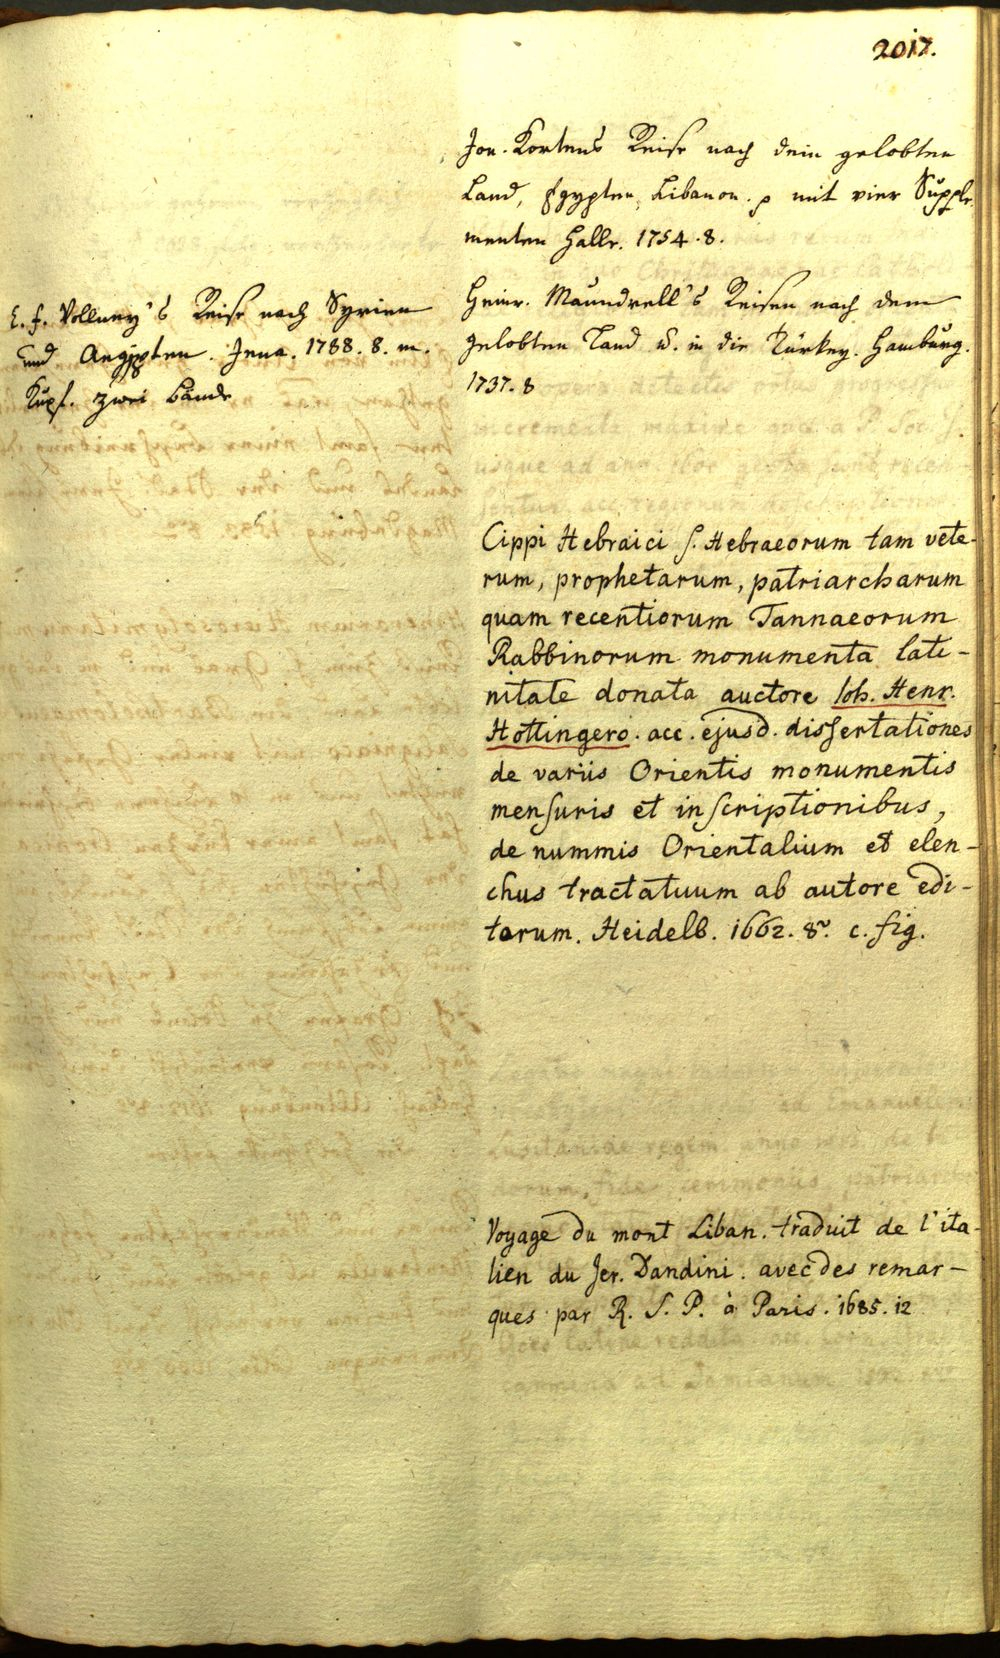 2017.
Jon. Kortens Reise nach dem gelobten
Land, Egypten, Libanon. p mit vier Supple-
menten Halle. 1754. 8.
Heinr. Maundrell's Reisen nach dem
gelobten Land u. in die Türkey. Hamburg.
1737. 8
C. F. Vollney's Reise nach Syrien
und Aegÿpten. Jena. 1788. 8. m.
Kupf. zwei Bände
Cippi Hebraici s. Hebraeorum tam vete-
rum, prophetarum, patriarcharum
quam recentiorum Tannaeorum
Rabbinorum monumenta lati-
nitate donata auctore Ioh. Henr.
Hottingero. acc. ejusd. dissertationes
de variis Orientis monumentis
mensuris et inscriptionibus,
de nummis Orientalium et elen-
chus tractatuum ab autore edi-
torum. Heidelb. 1662. 8º. c. fig.
Voyage du mont Liban. traduit de l'ita-
lien du Jer. Dandini. avec des remar-
ques par R. S. P. à Paris. 1685. 12